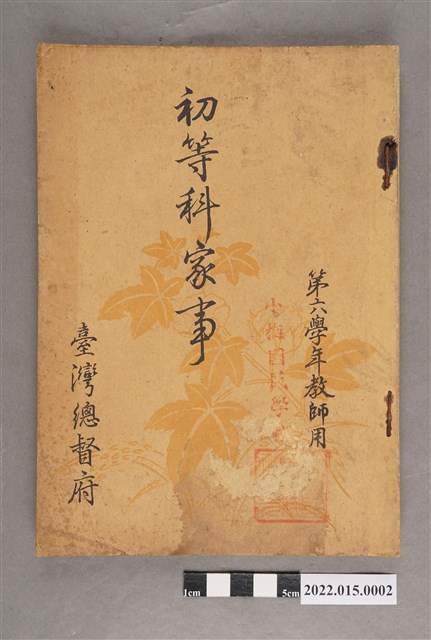 第六學年教師用
初等科家事
臺灣總督府
1cm
5cm
2022.015.0002